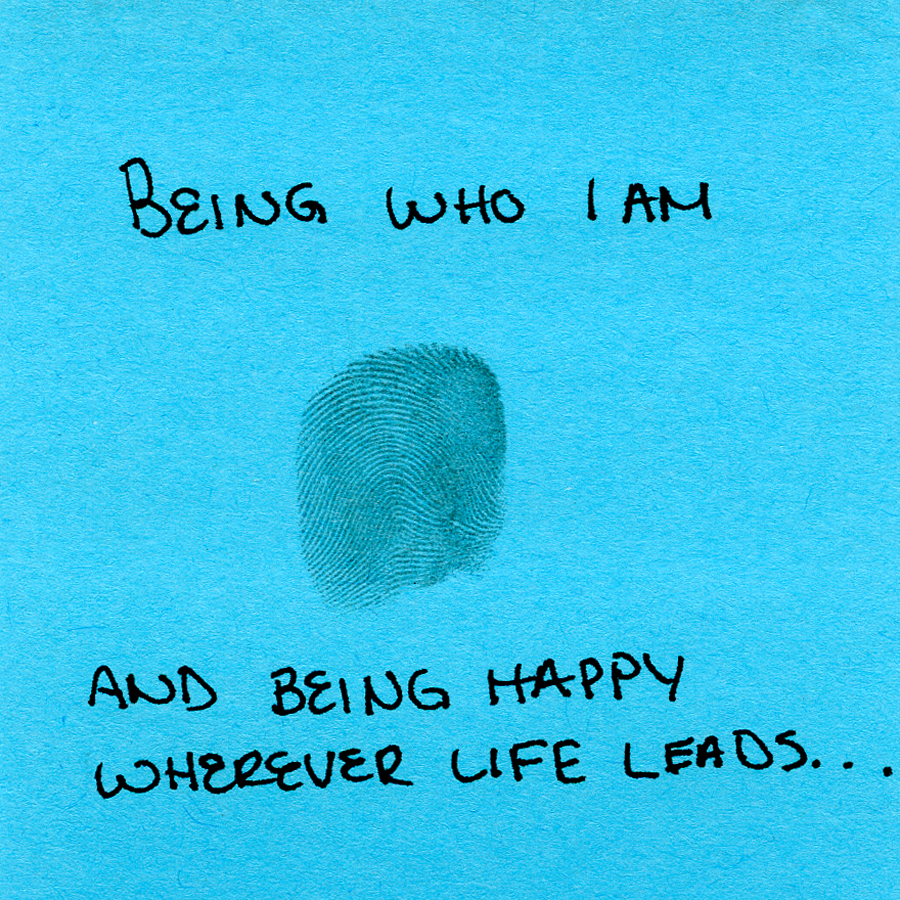 BEING WHO I AM
AND BEING HAPPY
WHEREVER LIFE LEADS...